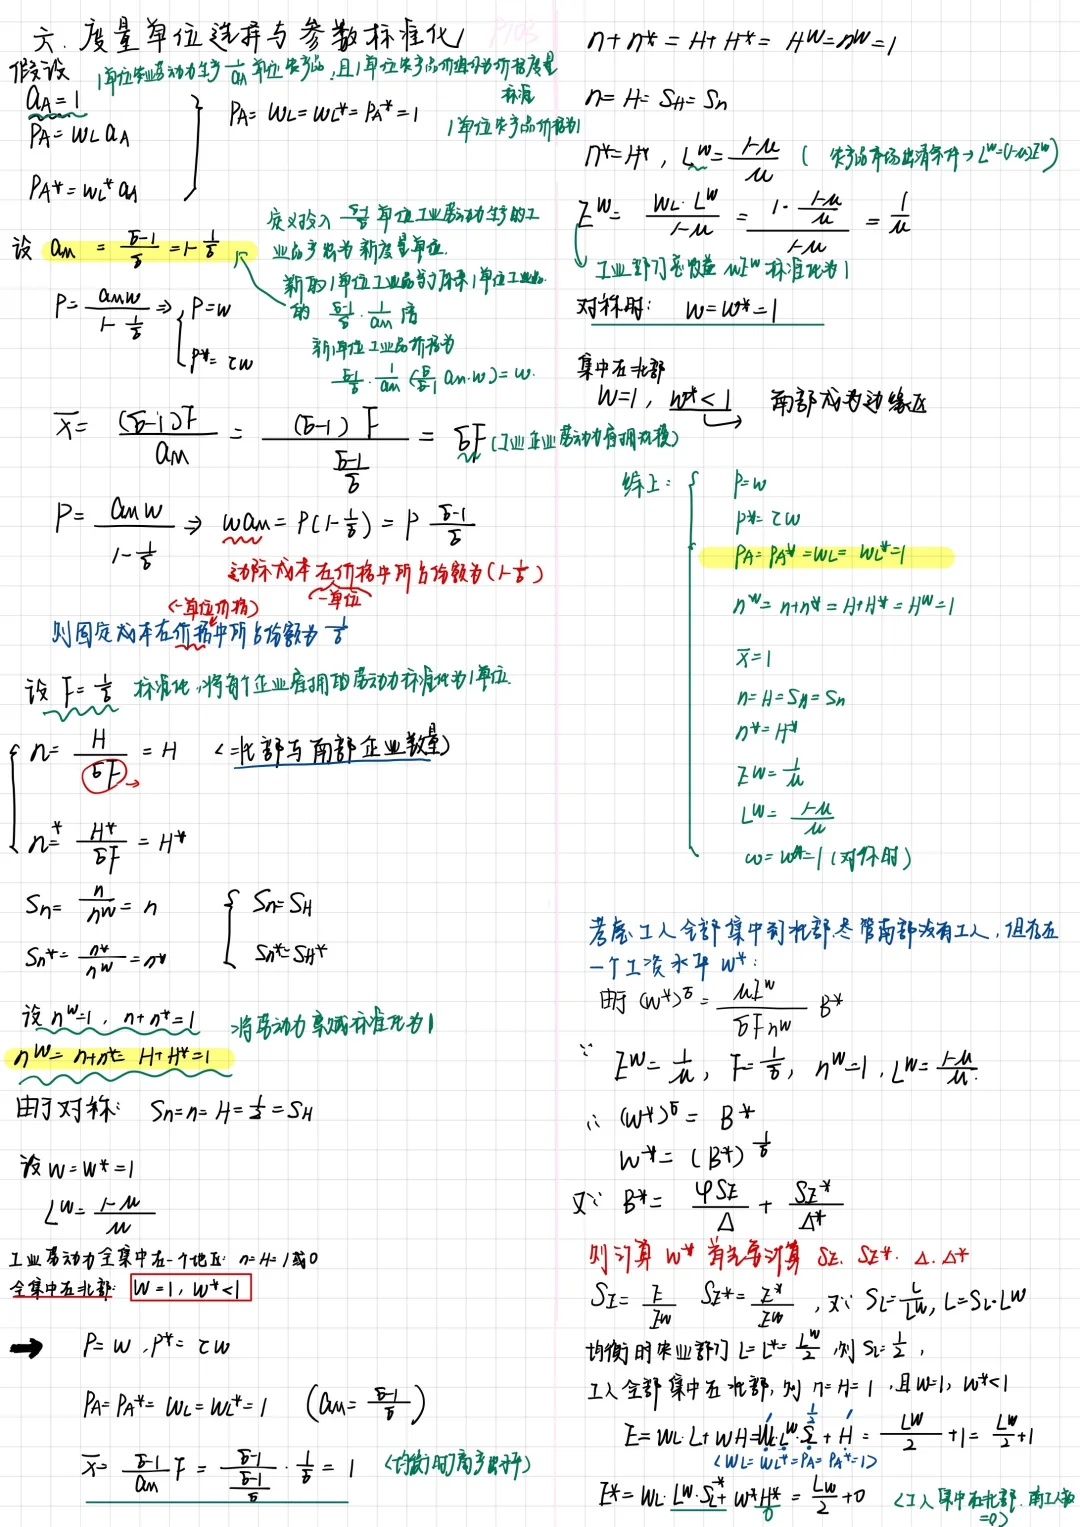 六. 度量单位选择与参数标准化
P103
假设
1单位农业劳动力生产 1/aA 单位农产品, 且1单位农产品价值作为价格度量标准
aA=1
PA=WL aA
PA*=WL* aA
PA=WL=WL*=PA*=1
1单位农产品价格为1
设 am = (σ-1)/σ = 1-1/σ
定义投入 (σ-1)/σ 单位工业劳动力生产的工业品产出为新度量单位.
新的1单位工业品等于原来1单位工业品的 (σ-1)/σ · 1/am 倍
新1单位工业品价格为
(σ-1)/σ · 1/am (σ/(σ-1) am·w) = w.
P = amw/(1-1/σ) ⇒ { P=w
P*=τw
x̄ = (σ-1)F/am = (σ-1)F/((σ-1)/σ) = σF (工业企业劳动力雇拥规模)
P = amw/(1-1/σ) ⇒ wam = P(1-1/σ) = P (σ-1)/σ
边际成本在价格中所占份额为(1-1/σ)
(一单位价格) 一单位
则固定成本在价格中所占份额为 1/σ
设 F=1/σ 标准化,将每个企业雇拥的劳动力标准化为1单位.
n = H/(σF) = H (=北部与南部企业数量)
n* = H*/(σF) = H*
Sn = n/nW = n { Sn=SH
Sn* = n*/nW = n* Sn*=SH*
设 nW=1, n+n*=1 将劳动力禀赋标准化为1
nW=n+n*=H+H*=1
由于对称: Sn=n=H=1/2=SH
设 w=w*=1
LW = (1-μ)/μ
工业劳动力全集中在一个地区: n=H=1或0
全集中在北部: W=1, w*<1
➡ P=w, P*=τw
PA=PA*=WL=WL*=1 (am=(σ-1)/σ)
x̄ = (σ-1)/am F = (σ-1)/((σ-1)/σ) · 1/σ = 1 (均衡时的产出水平)
n+n*=H+H*=HW=nW=1
n=H=SH=Sn
n*=H*, LW=(1-μ)/μ (农产品市场出清条件→LW=(1-μ)EW)
EW = WL·LW/(1-μ) = 1·((1-μ)/μ)/(1-μ) = 1/μ
工业部门总收益 μEW 标准化为1
对称时: w=w*=1
集中在北部
W=1, w*<1 南部成为边缘区
综上: { P=w
P*=τw
PA=PA*=WL=WL*=1
nW=n+n*=H+H*=HW=1
x̄=1
n=H=SH=Sn
n*=H*
EW=1/μ
LW=(1-μ)/μ
w=w*=1 (对称时)
考虑工人全部集中到北部,尽管南部没有工人, 但存在
一个工资水平 w*:
由于 (w*)^σ = μEW/(σFnW) B*
∵ EW=1/μ, F=1/σ, nW=1, LW=(1-μ)/μ.
∴ (w*)^σ = B*
w* = (B*)^(1/σ)
又∵ B* = φSE/Δ + SE*/Δ*
则计算 w* 首先要计算 SE. SE*. Δ. Δ*
SE = E/EW SE* = E*/EW, 又∵ SL=L/LW, L=SL·LW
均衡时农业部门 L=L*=LW/2, 则 SL=1/2,
工人全部集中在北部, 则 n=H=1, 且w=1, w*<1
E=WL·L+WH=WL·LW·SL+H = LW/2+1 = LW/2+1
1 1/2 1
(WL=WL*=PA=PA*=1)
E*=WL·LW·SL*+w*H* = LW/2+0 (工人集中在北部, 南工人数=0)
0